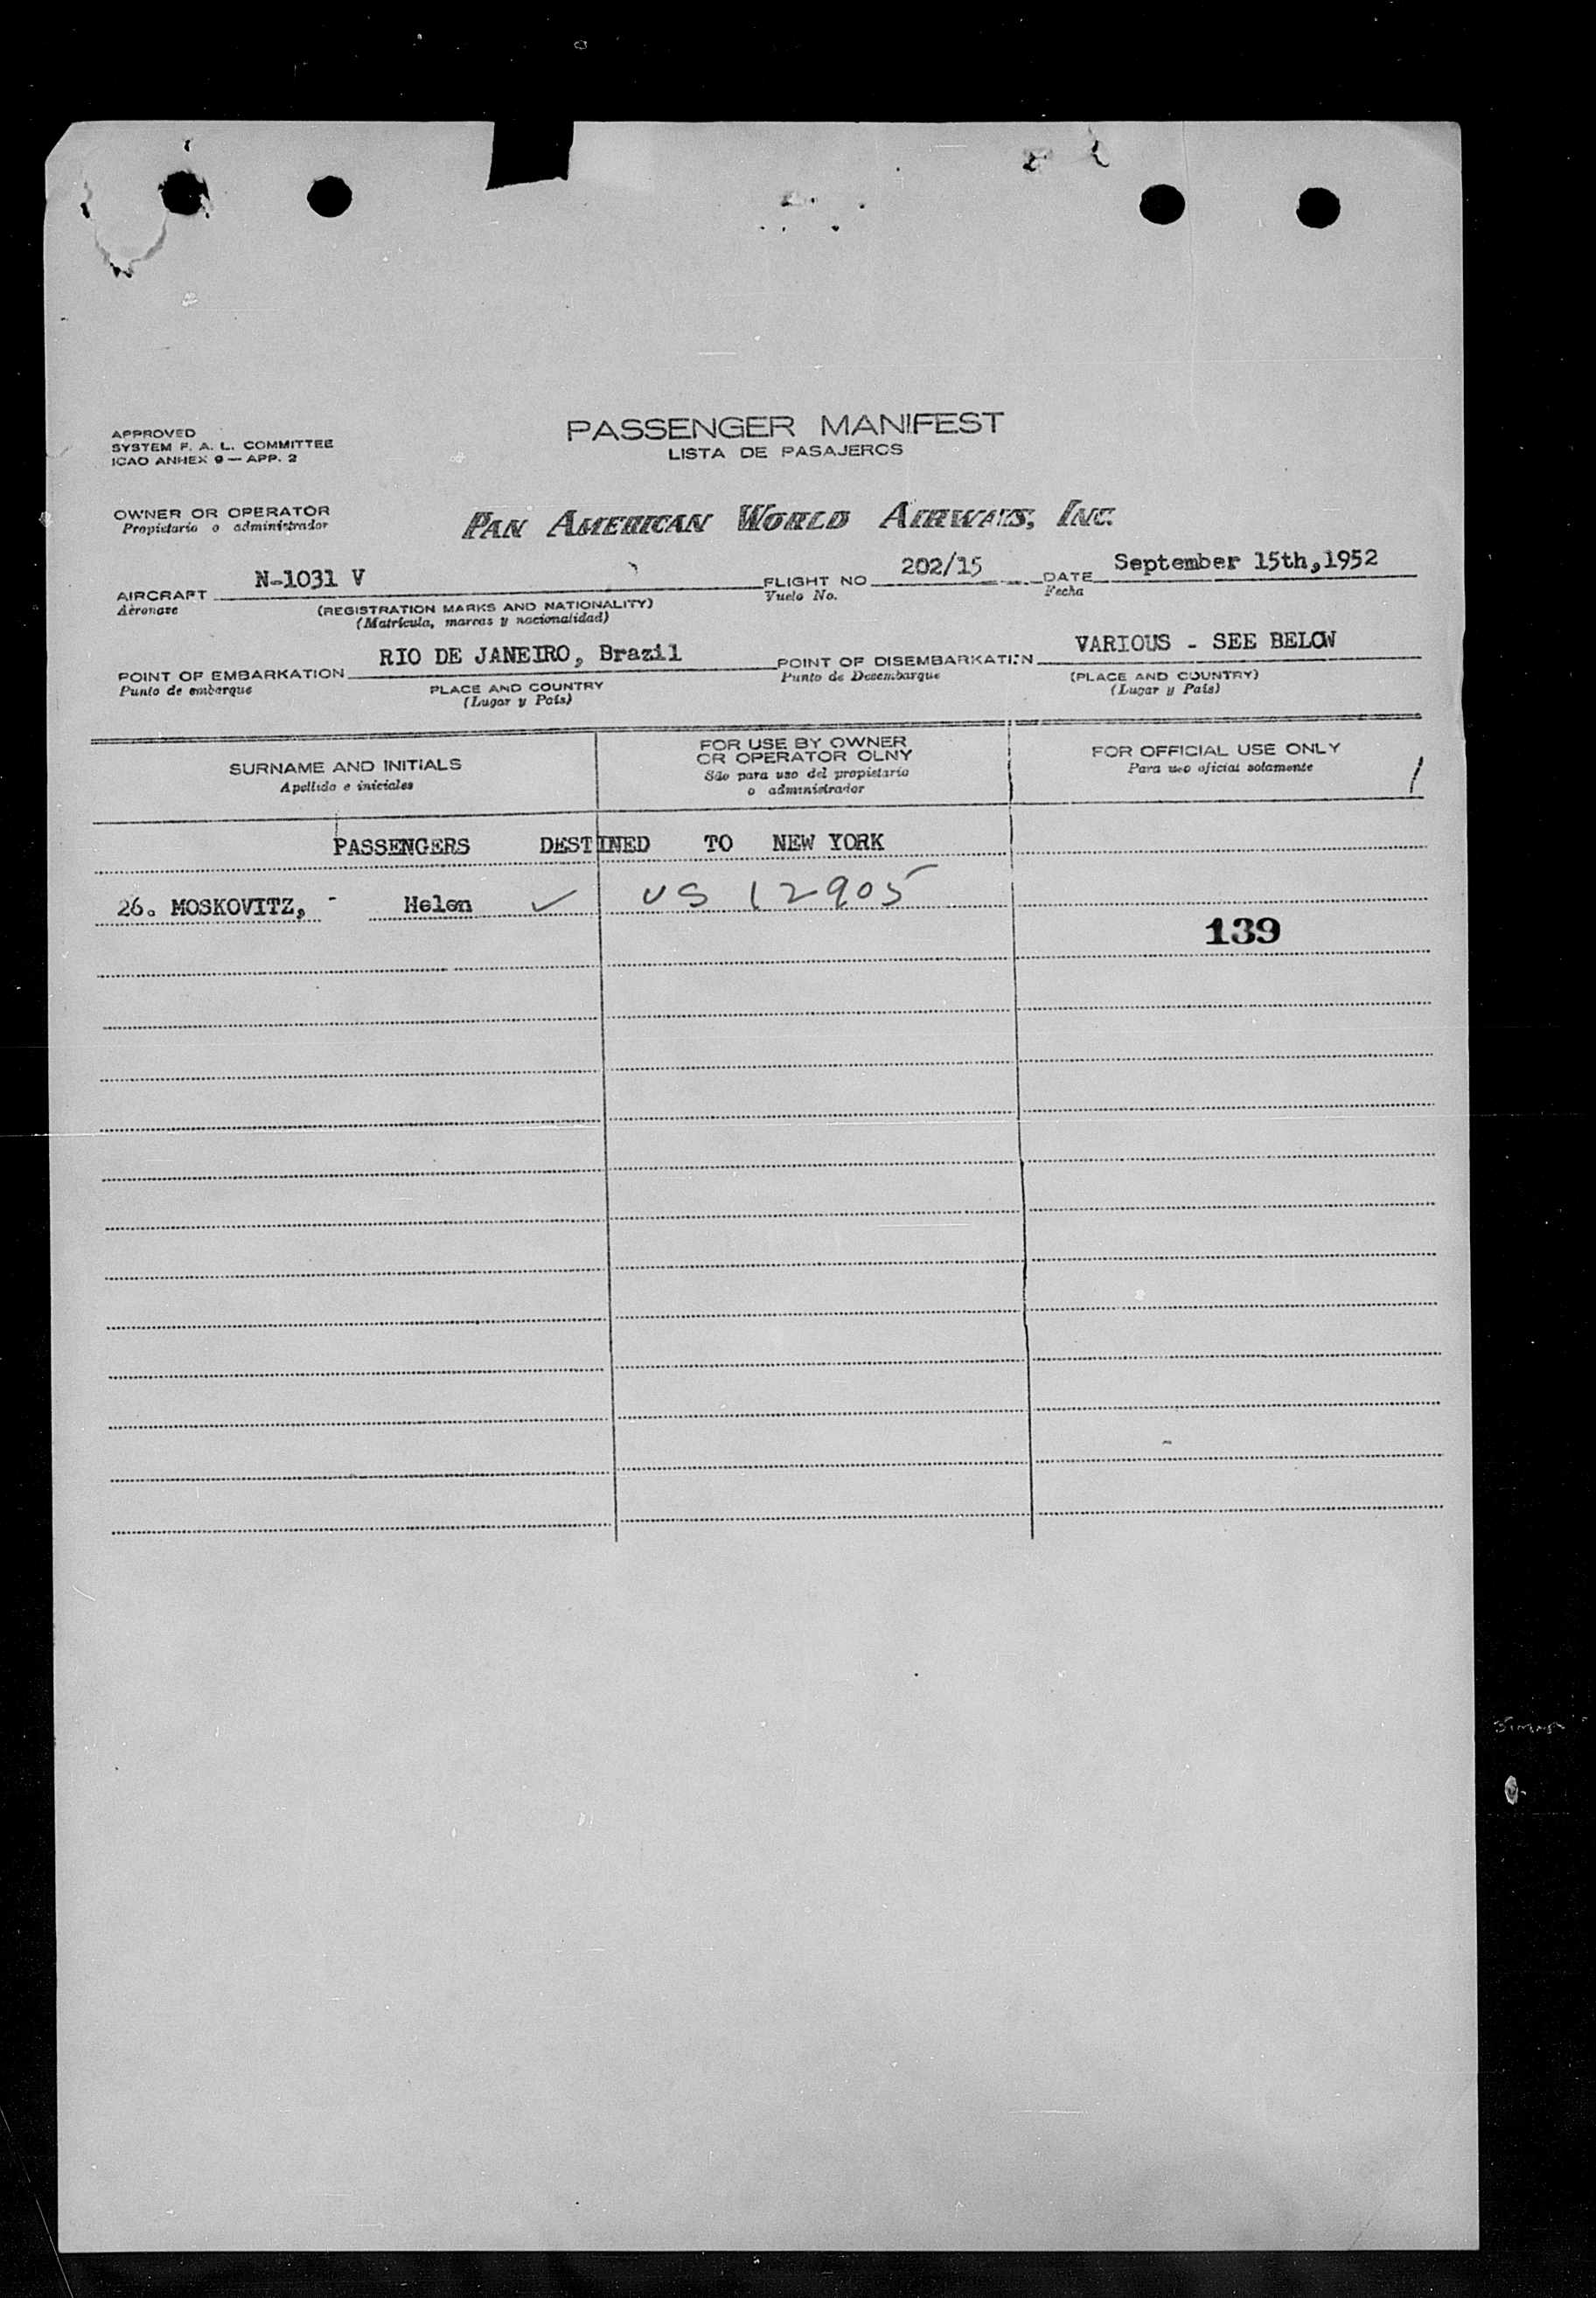 APPROVED
SYSTEM F. A. L. COMMITTEE
ICAO ANNEX 9 — APP. 2
PASSENGER MANIFEST
LISTA DE PASAJEROS
OWNER OR OPERATOR
Propietario o administrador
PAN AMERICAN WORLD AIRWAYS, INC.
AIRCRAFT N-1031 V FLIGHT NO 202/15 DATE September 15th,1952
Aeronave Vuelo No. Fecha
(REGISTRATION MARKS AND NATIONALITY)
(Matrícula, marcas y nacionalidad)
POINT OF EMBARKATION RIO DE JANEIRO, Brazil POINT OF DISEMBARKATION VARIOUS - SEE BELOW
Punto de embarque Punto de Desembarque
PLACE AND COUNTRY (PLACE AND COUNTRY)
(Lugar y País) (Lugar y País)
SURNAME AND INITIALS
Apellido e iniciales
FOR USE BY OWNER
OR OPERATOR OLNY
Sáo para uso del propietario
o administrador
FOR OFFICIAL USE ONLY
Para uso oficial solamente
PASSENGERS DESTINED TO NEW YORK
26. MOSKOVITZ, - Helen ✓ US 12905
139